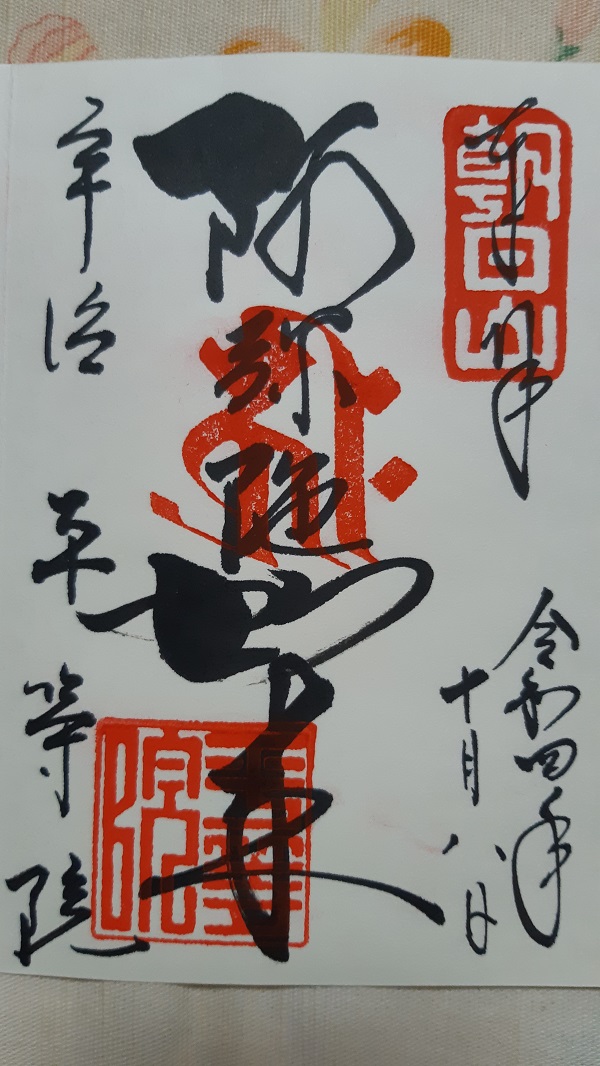 奉拝
朝日山
令和四年
十月八日
阿弥陀如来
平等院
宇治 平等院